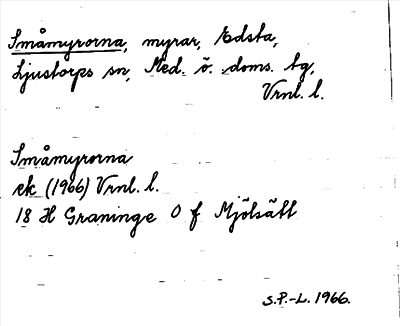 Småmyrorna, myrar, Edsta,
Ljustorps sn, Med. ö. doms. tg,
Vrnl. l.
Småmyrorna
ek (1966) Vrnl. l.
18 H Graninge 0 f Mjölsätt
S.P.-L. 1966.